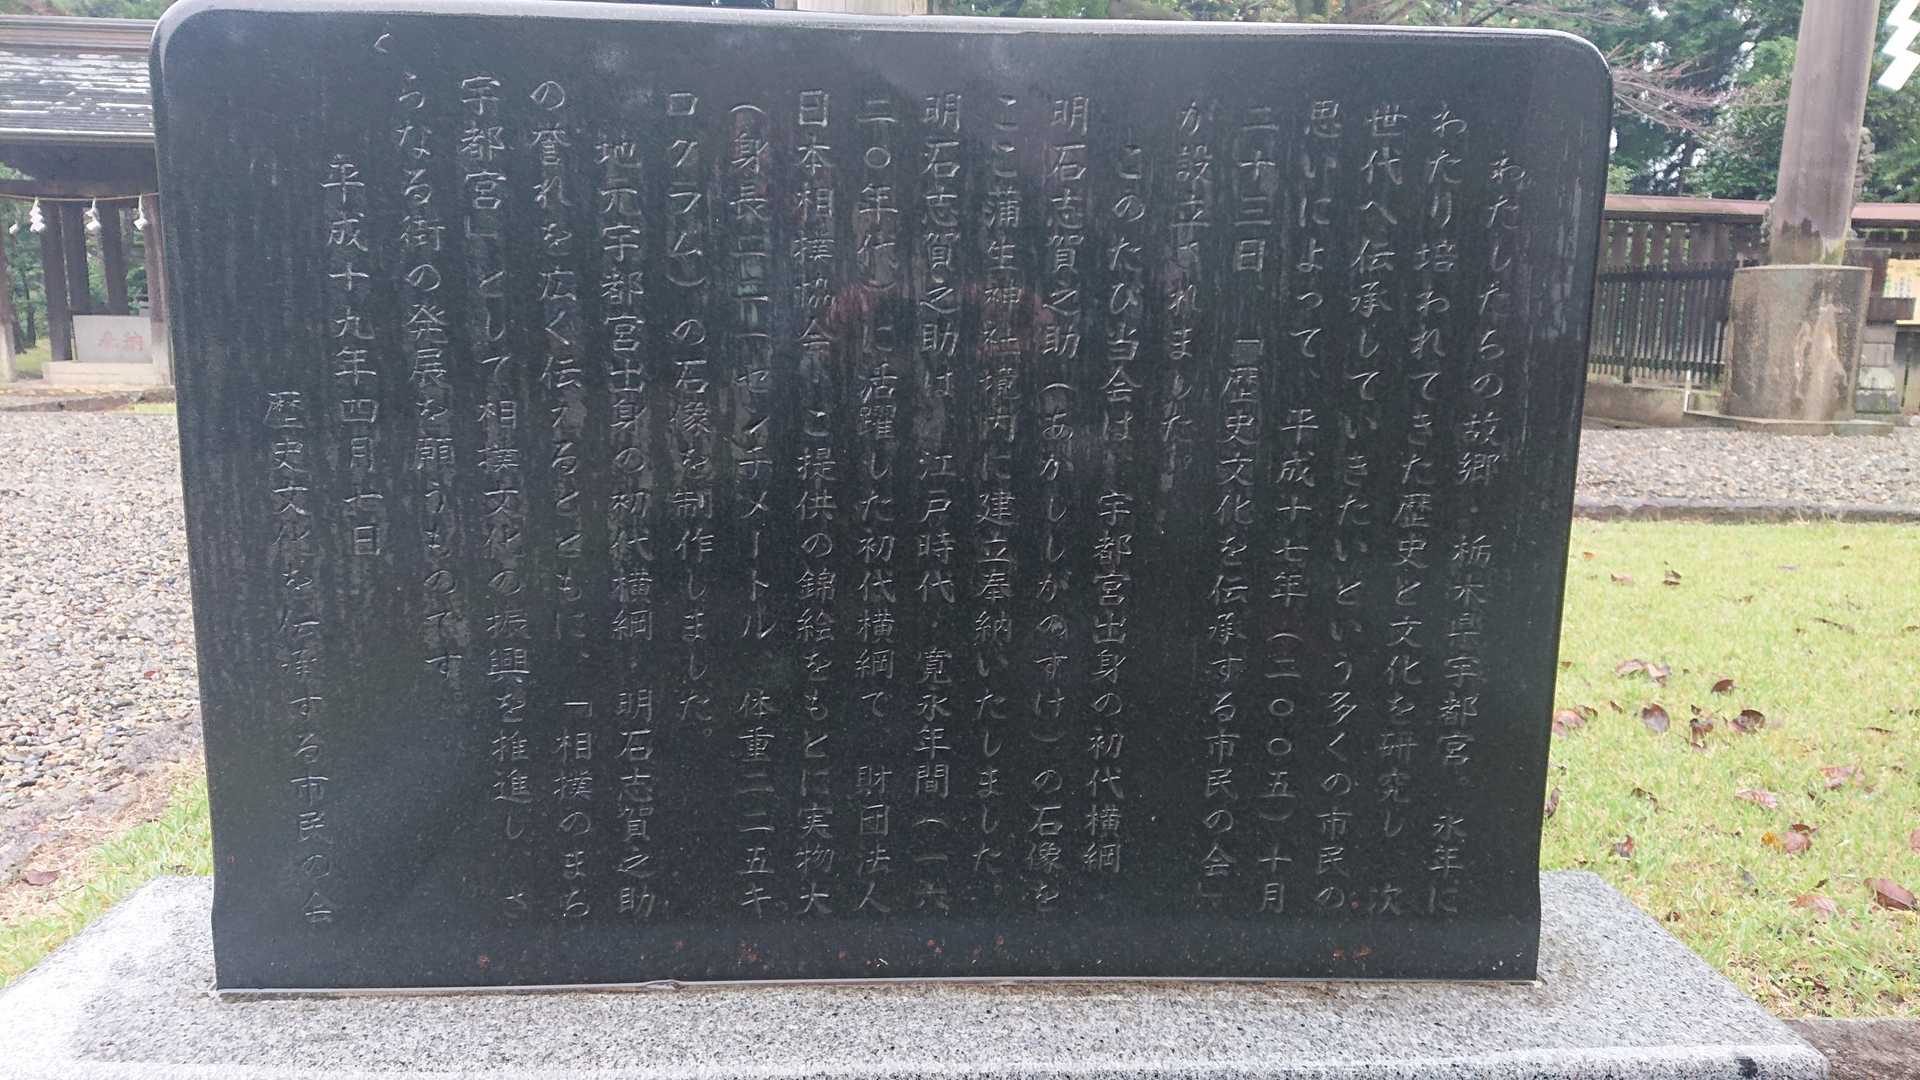 わたしたちの故郷・栃木県宇都宮。永年に
わたり培われてきた歴史と文化を研究し、次
世代へ伝承していきたいという多くの市民の
思いによって、平成十七年(二〇〇五)十月
二十三日、「歴史文化を伝承する市民の会」
が設立されました。
このたび当会は、宇都宮出身の初代横綱
明石志賀之助(あかししがのすけ)の石像を
ここ蒲生神社境内に建立奉納いたしました。
明石志賀之助は、江戸時代・寛永年間(一六
二〇年代)に活躍した初代横綱で、財団法人
日本相撲協会・ご提供の錦絵をもとに実物大
(身長二二一センチメートル、体重二二五キ
ログラム)の石像を制作しました。
地元宇都宮出身の初代横綱・明石志賀之助
の誉れを広く伝えるとともに、「相撲のまち
宇都宮」として相撲文化の振興を推進し、さ
らなる街の発展を願うものです。
平成十九年四月七日
歴史文化を伝承する市民の会